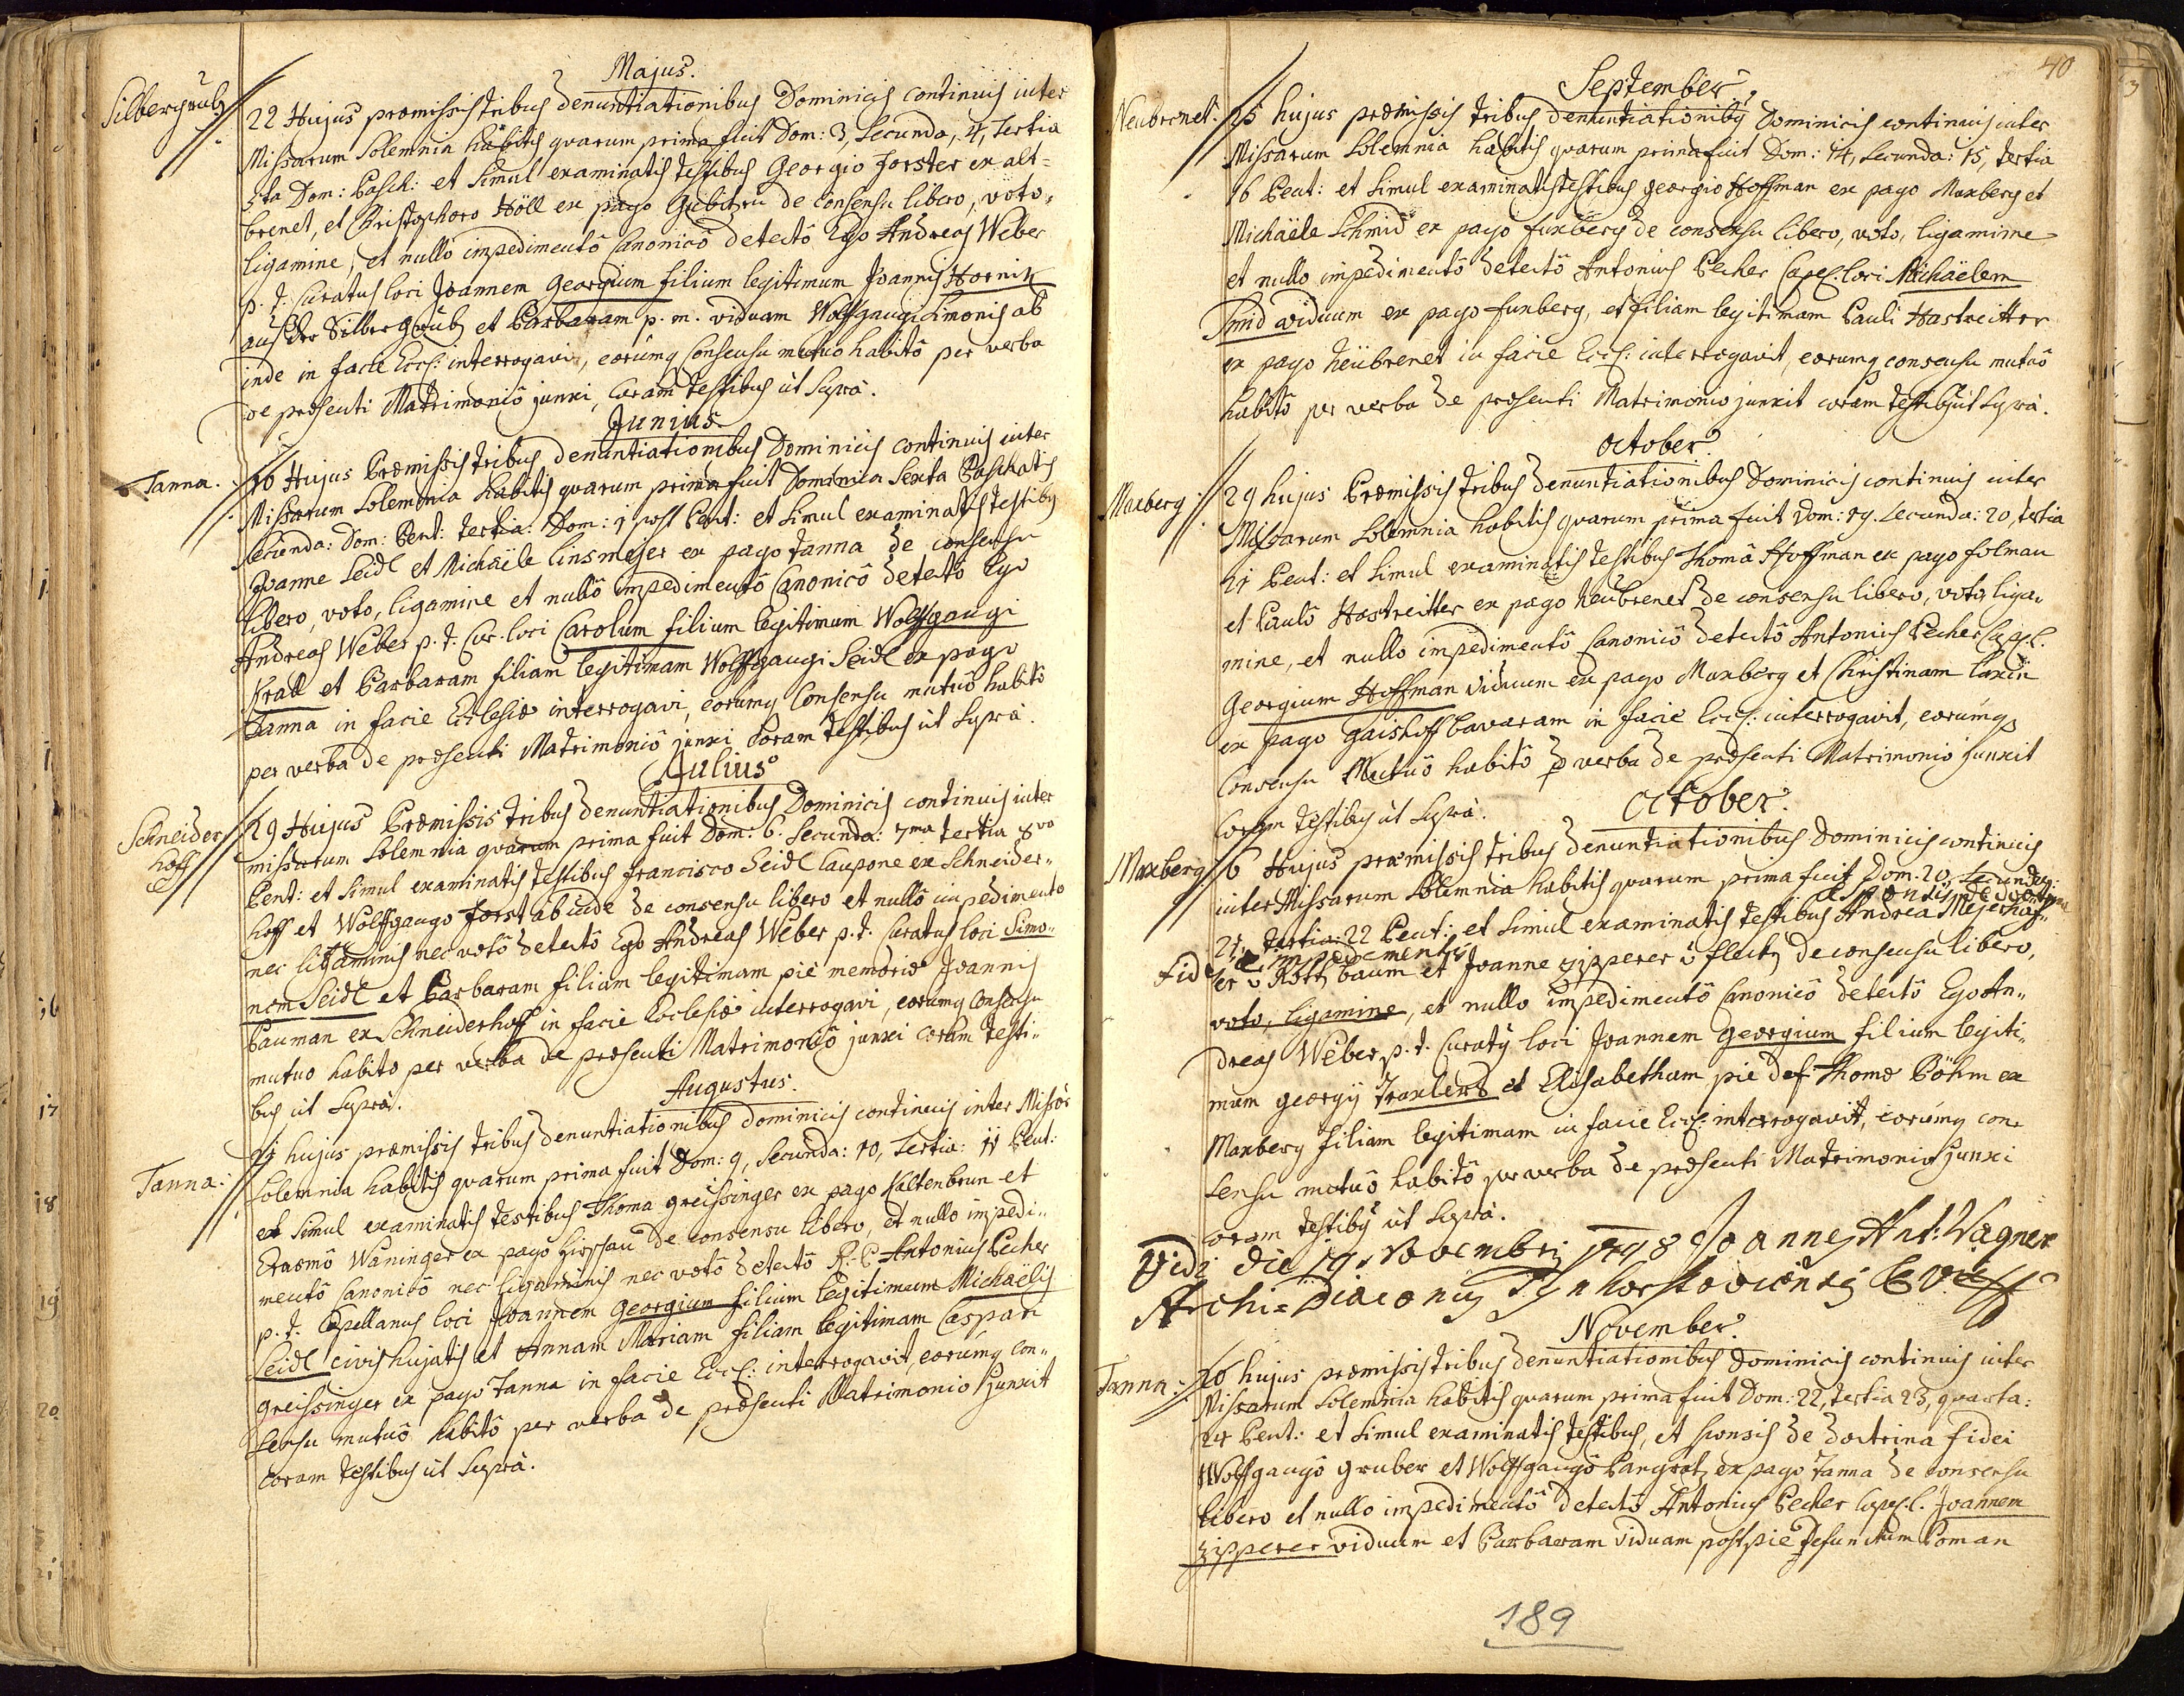 Majus.
Silbergrub
22 Hujus præmissis tribus denuntiationibus Dominicis continuis inter
Missarum Solemnia habitis quarum prima fuit Dom: 3, Secunda, 4, tertia
5ta Dom: Pasch: et simul examinatis testibus Georgio Forster ex alt=
brenet, et Christophoro Höll ex pago de consensu libero, voto,
ligamine, et nullô impedimentô Canonicô detectô Ego Andreas Weber
p. t. Curatus loci Joannem Georgium filium legitimum Joannis Hornik
aus der Silbergrub et Barbaram p. m. viduam Wolfgangi Simonis ab
inde in facie Eccl: interrogavi, eorumq consensu mutuo habitô per verba
de præsenti Matrimoniô junxi, Coram testibus ut Suprà.
Junius
Tanna.
16 Hujus Præmissis tribus denuntiationibus Dominicis continuis inter
Missarum Solemnia habitis quarum prima fuit Dominica Sexta Paschatis
secunda: Dom: Pent: tertia: Dom: 1 post Pent: et simul examinatis testibq
Joanne Seidl et Michaële Linsmejer ex pago Tanna de consensu
libero, voto, ligamine et nullô impedimentô Canonicô detectô Ego
Andreas Weber p. t. Cur. loci Carolum filium legitimum Wolfgangi
Krall et Barbaram filiam legitimam Wolffgangi Seidl ex pago
Tanna in facie Ecclesiæ interrogavi, eorumq Consensu mutuô habitô
per verba de præsenti Matrimoniô junxi Coram testibus ut Suprà.
Julius
Schneider
hoff
29 Hujus Præmissis tribus denuntiationibus Dominicis continuis inter
missarum Solemnia quarum prima fuit Dom: 6. Secunda: 7ma tertia 8va
Pent: et simul examinatis testibus Francisco Seidl Caupone ex Schneider=
hoff et Wolffgango Forst ab inde de consensu libero et nullô impedimento
nec ligaminis nec votô detectô Ego Andreas Weber p. t. Curatus loci Simo=
nem Seidl et Barbaram filiam legitimam piè memoriæ Joannis
Bauman ex Schneiderhoff in facie Ecclesiæ interrogavi, eorumq consensu
mutuo habito per verba de præsenti Matrimoniô junxi coram testi=
bus ut Suprà.
Augustus.
Tanna:
hujus præmissis tribus denuntiationibus dominicis continuis inter Missarû
Solemnia habitis quarum prima fuit Dom: 9, Secunda: 10, Tertia: 11 Pent:
et simul examinatis testibus Thoma greissinger ex pago Kaltenbrun et
Erasmô Waninger ex pago Hirschau de consensu libero, et nullo impedi=
mentô Canonicô nec ligaminis nec votô detectô R. P. Antonius Pecher
p. t. Capellanus loci Joannem Georgium filium legitimum Michaëlis
Seidl civis hujatis et Annam Mariam filiam legitimam Caspari
greissinger ex pago Tanna in facie Eccl: interrogavit, eorumq con=
sensu mutuô habitô per verba de præsenti Matrimonio junxit
coram testibus ut Suprà.
40
September
Neubrenet:
15 hujus præmissis tribus denuntiationibq Dominicis continuis inter
Missarum Solemnia habitis quarum prima fuit Dom: 14, Secunda: 15, tertia
16 Pent: et simul examinatis testibus georgio Hoffman ex pago Maxberg et
Michaële Schmid ex pago Fuxberg de consensu libero, voto, ligamine
et nullo impedimentô detectô Antonius Pecher Capel. loci Michaëlem
Smid viduum ex pago Fuxberg, et filiam legitimam Pauli Hastreitter
ex pago Neubrenet in facie Eccl: interrogavit, eorumq consensu mutuô
habitô per verba de præsenti Matrimonio junxit coram testibq ut Suprà.
October
Maxberg:
29 hujus Præmissis tribus denuntiationibus Dominicis continuis inter
Missarum Solemnia habitis quarum prima fuit Dom: 19. Secunda: 20, tertia
21 Pent: et simul examinatis testibus Thomâ Hoffman ex pago Folmau
et Paulô Hastreitter ex pago Neubrenet de consensu libero, voto, liga=
mine, et nullo impedimentô Canonicô detectô Antonius Pecher Cap. l.
Georgium Hoffman viduum ex pago Maxberg et Christinam
ex pago gaishoff Bavaram in facie Eccl: interrogavit, eorumq
Consensu Mutuô habitô p verba de præsenti Matrimonio junxit
Coram testibus ut Suprà.
October
Maxberg:
6 Hujus præmissis tribus denuntiationibus Dominicis continuis
inter Missarum Solemnia habitis quarum prima fuit Dom. 20, Secunda:
et sponsis de doctrina
21, tertia: 22 Pent: et simul examinatis testibus Andrea Mejerhof=
fidei et impedimentis
er v Rothbaum et Joanne zipperer v fleck de consensu libero,
voto, ligamine, et nullo impedimentô Canonicô detectô Ego An=
dreas Weber p. t. Curatq loci Joannem Georgium filium legiti=
mum georgij Traxlers et Elisabetham piè def. Thomæ Böhm ex
Maxberg filiam legitimam in facie Eccl: interrogavit, eorumq con=
sensu mutuô habitô per verba de præsenti Matrimonio junxi
coram testibq ut Suprà.
Vidi die 19. Novembris 1748 Joannes Ant: Wagner
Archi=Diaconus
November
Tanna:
26 hujus præmissis tribus denuntiationibus Dominicis continuis inter
Missarum Solemnia habitis quarum prima fuit Dom: 22, tertia 23, quarta:
24 Pent: et simul examinatis testibus, et sponsis de doctrina fidei
Wolfgangô gruber et Wolffgangô Pangratz ex pago Tanna de consensu
libero et nullo impedimentô detectô Antonius Pecher Capel. l. Joannem
zipperer viduum et Barbaram viduam post piè defunctum Roman
189